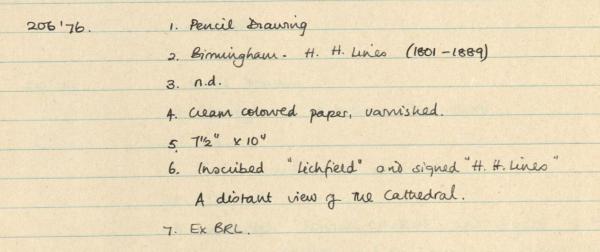 206'76. 1. Pencil Drawing
2. Birmingham - H. H. Lines (1801-1889)
3. n.d.
4. Cream coloured paper, varnished.
5. 7½" x 10"
6. Inscribed "Lichfield" and signed "H. H. Lines"
A distant view of the Cathedral.
7. Ex BRL.